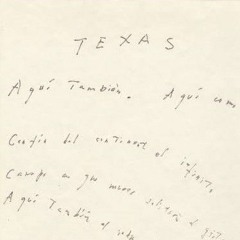 TEXAS
Aquí También. Aquí como
Confín del continente el infinito
Campo en que muere solitario el grito
Aquí También el